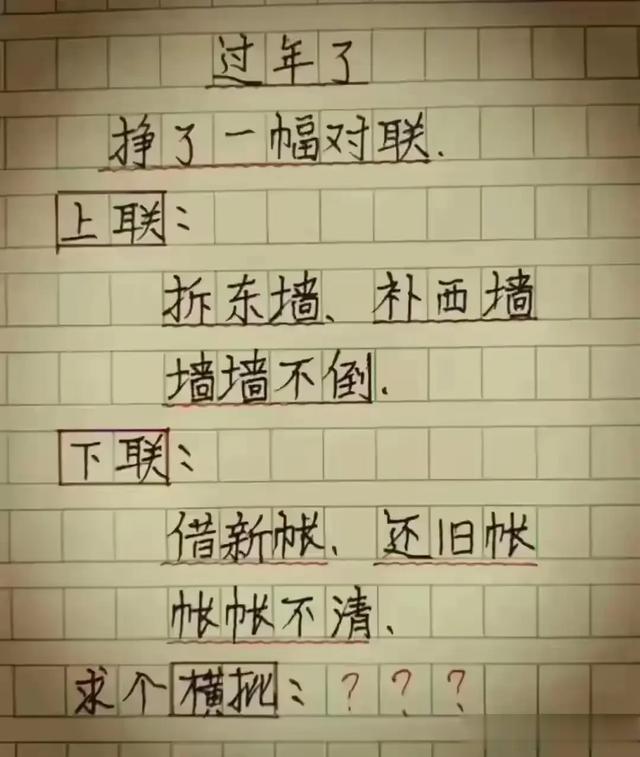 过年了
挣了一幅对联.
上联:
拆东墙、补西墙
墙墙不倒.
下联:
借新帐、还旧帐
帐帐不清、
求个横批:???